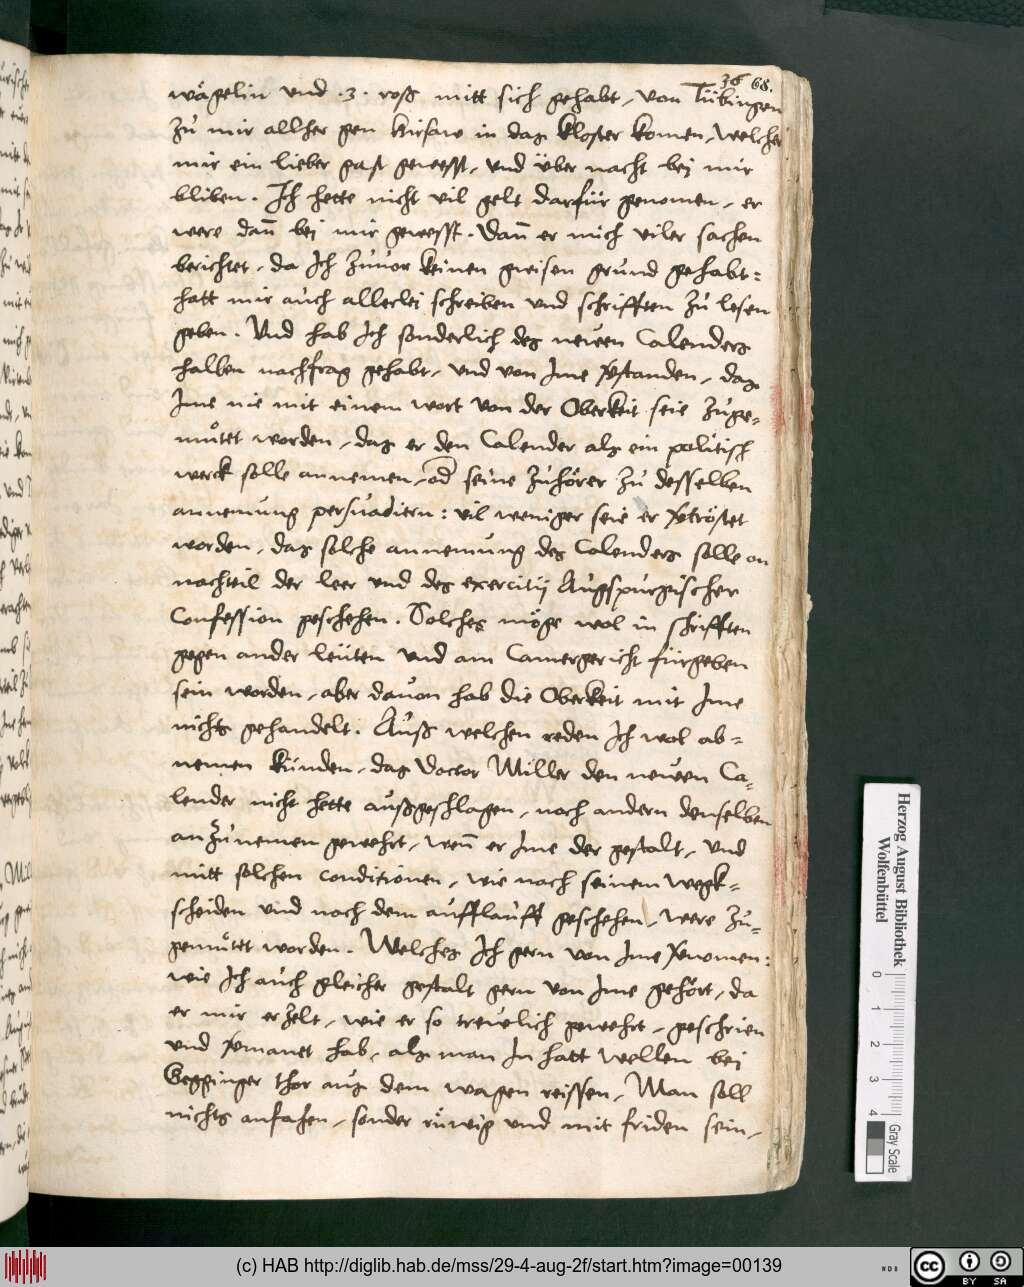 36 68.
wägelin vnd .3. roß mitt sich gehabt, von Tübingen
zů mir allher gen Hirsaw in das kloster komen, welcher
mir ein lieber gast gewesst, vnd über nacht bei mir
bliben. Ich hette nicht vil gelt darfür genomen, er
were dañ bei mir gewesst. Dañ er mich viler sachen
berichtet, da Ich zůuor keinen gwisen grund gehabt:
hatt mir auch allerlei schreiben vnd schrifften zů lesen
geben. Vnd hab Ich sonderlich des newen Calenders
halben nachfrag gehabt, vnd von Ime v̄standen, das
Ime nie mit einem wort von der Oberkeit seie zůge-
můtet worden, das er den Calender als ein politisch
werck solle annemen, od seine zůhörer zů desselben
annemung persuadiern: vil weniger seie er v̄tröstet
worden, das solche annemung des Calenders solle on
nachteil der leer vnd des exercitij Augspurgischer
Confession geschehen. Solches möge wol in schrifften
gegen ander leüten vnd am Camergericht fürgeben
sein worden, aber dauon hab die Oberkeit mit Ime
nichts gehandelt. Auß welchen reden Ich wol ab-
nemen künden, das Doctor Miller den newen Ca-
lender nicht hette außgeschlagen, noch andern denselben
anzůnemen gewehrt, weñ er Ime der gestalt, vnd
mitt solchen conditionen, wie nach seinem wegk-
scheiden vnd nach dem aufflauff geschehen, were zů-
gemůtet worden. Welches Ich gern von Ime v̄nomen:
wie Ich auch gleicher gestalt gern von Ime gehört, da
er mir erzelt, wie er so trewlich gewehrt, geschrien
vnd v̄manet hab, als man In hatt wellen bei
Geppinger thor aus dem wagen reissen, Man soll
nichts anfahen, sonder růwig vnd mit friden sein,
Herzog August Bibliothek
Wolfenbüttel
0 1 2 3 4
Gray Scale
(c) HAB http://diglib.hab.de/mss/29-4-aug-2f/start.htm?image=00139
WDB
cc BY SA